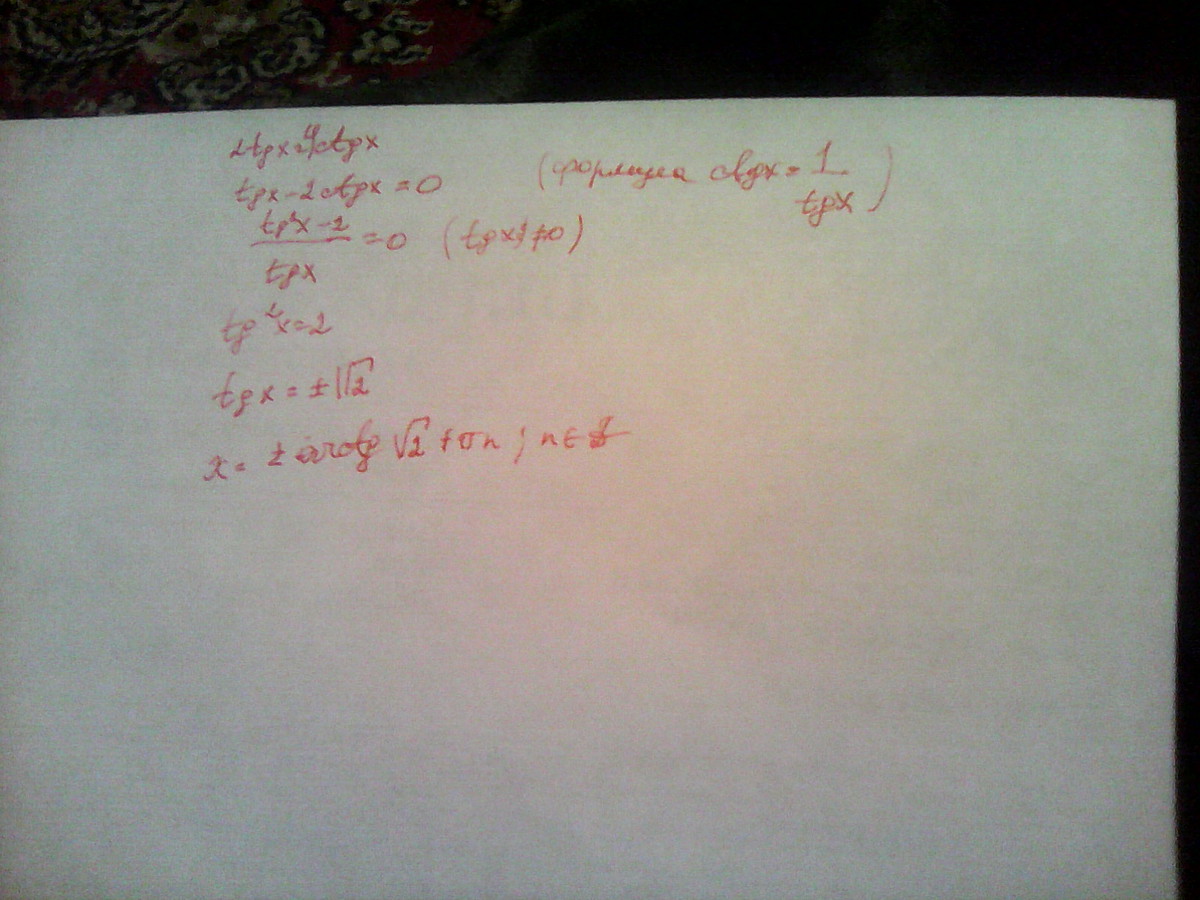 2tgx=4ctgx
tgx-2ctgx=0 (формула ctgx=1/tgx)
tg²x-2/tgx=0 (tgx≠0)
tg²x=2
tgx=±√2
x=±arctg√2+πn; n∈Z